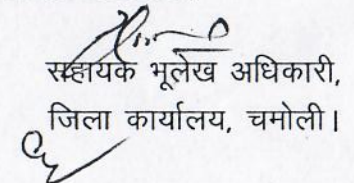 सहायक भूलेख अधिकारी,
जिला कार्यालय, चमोली।